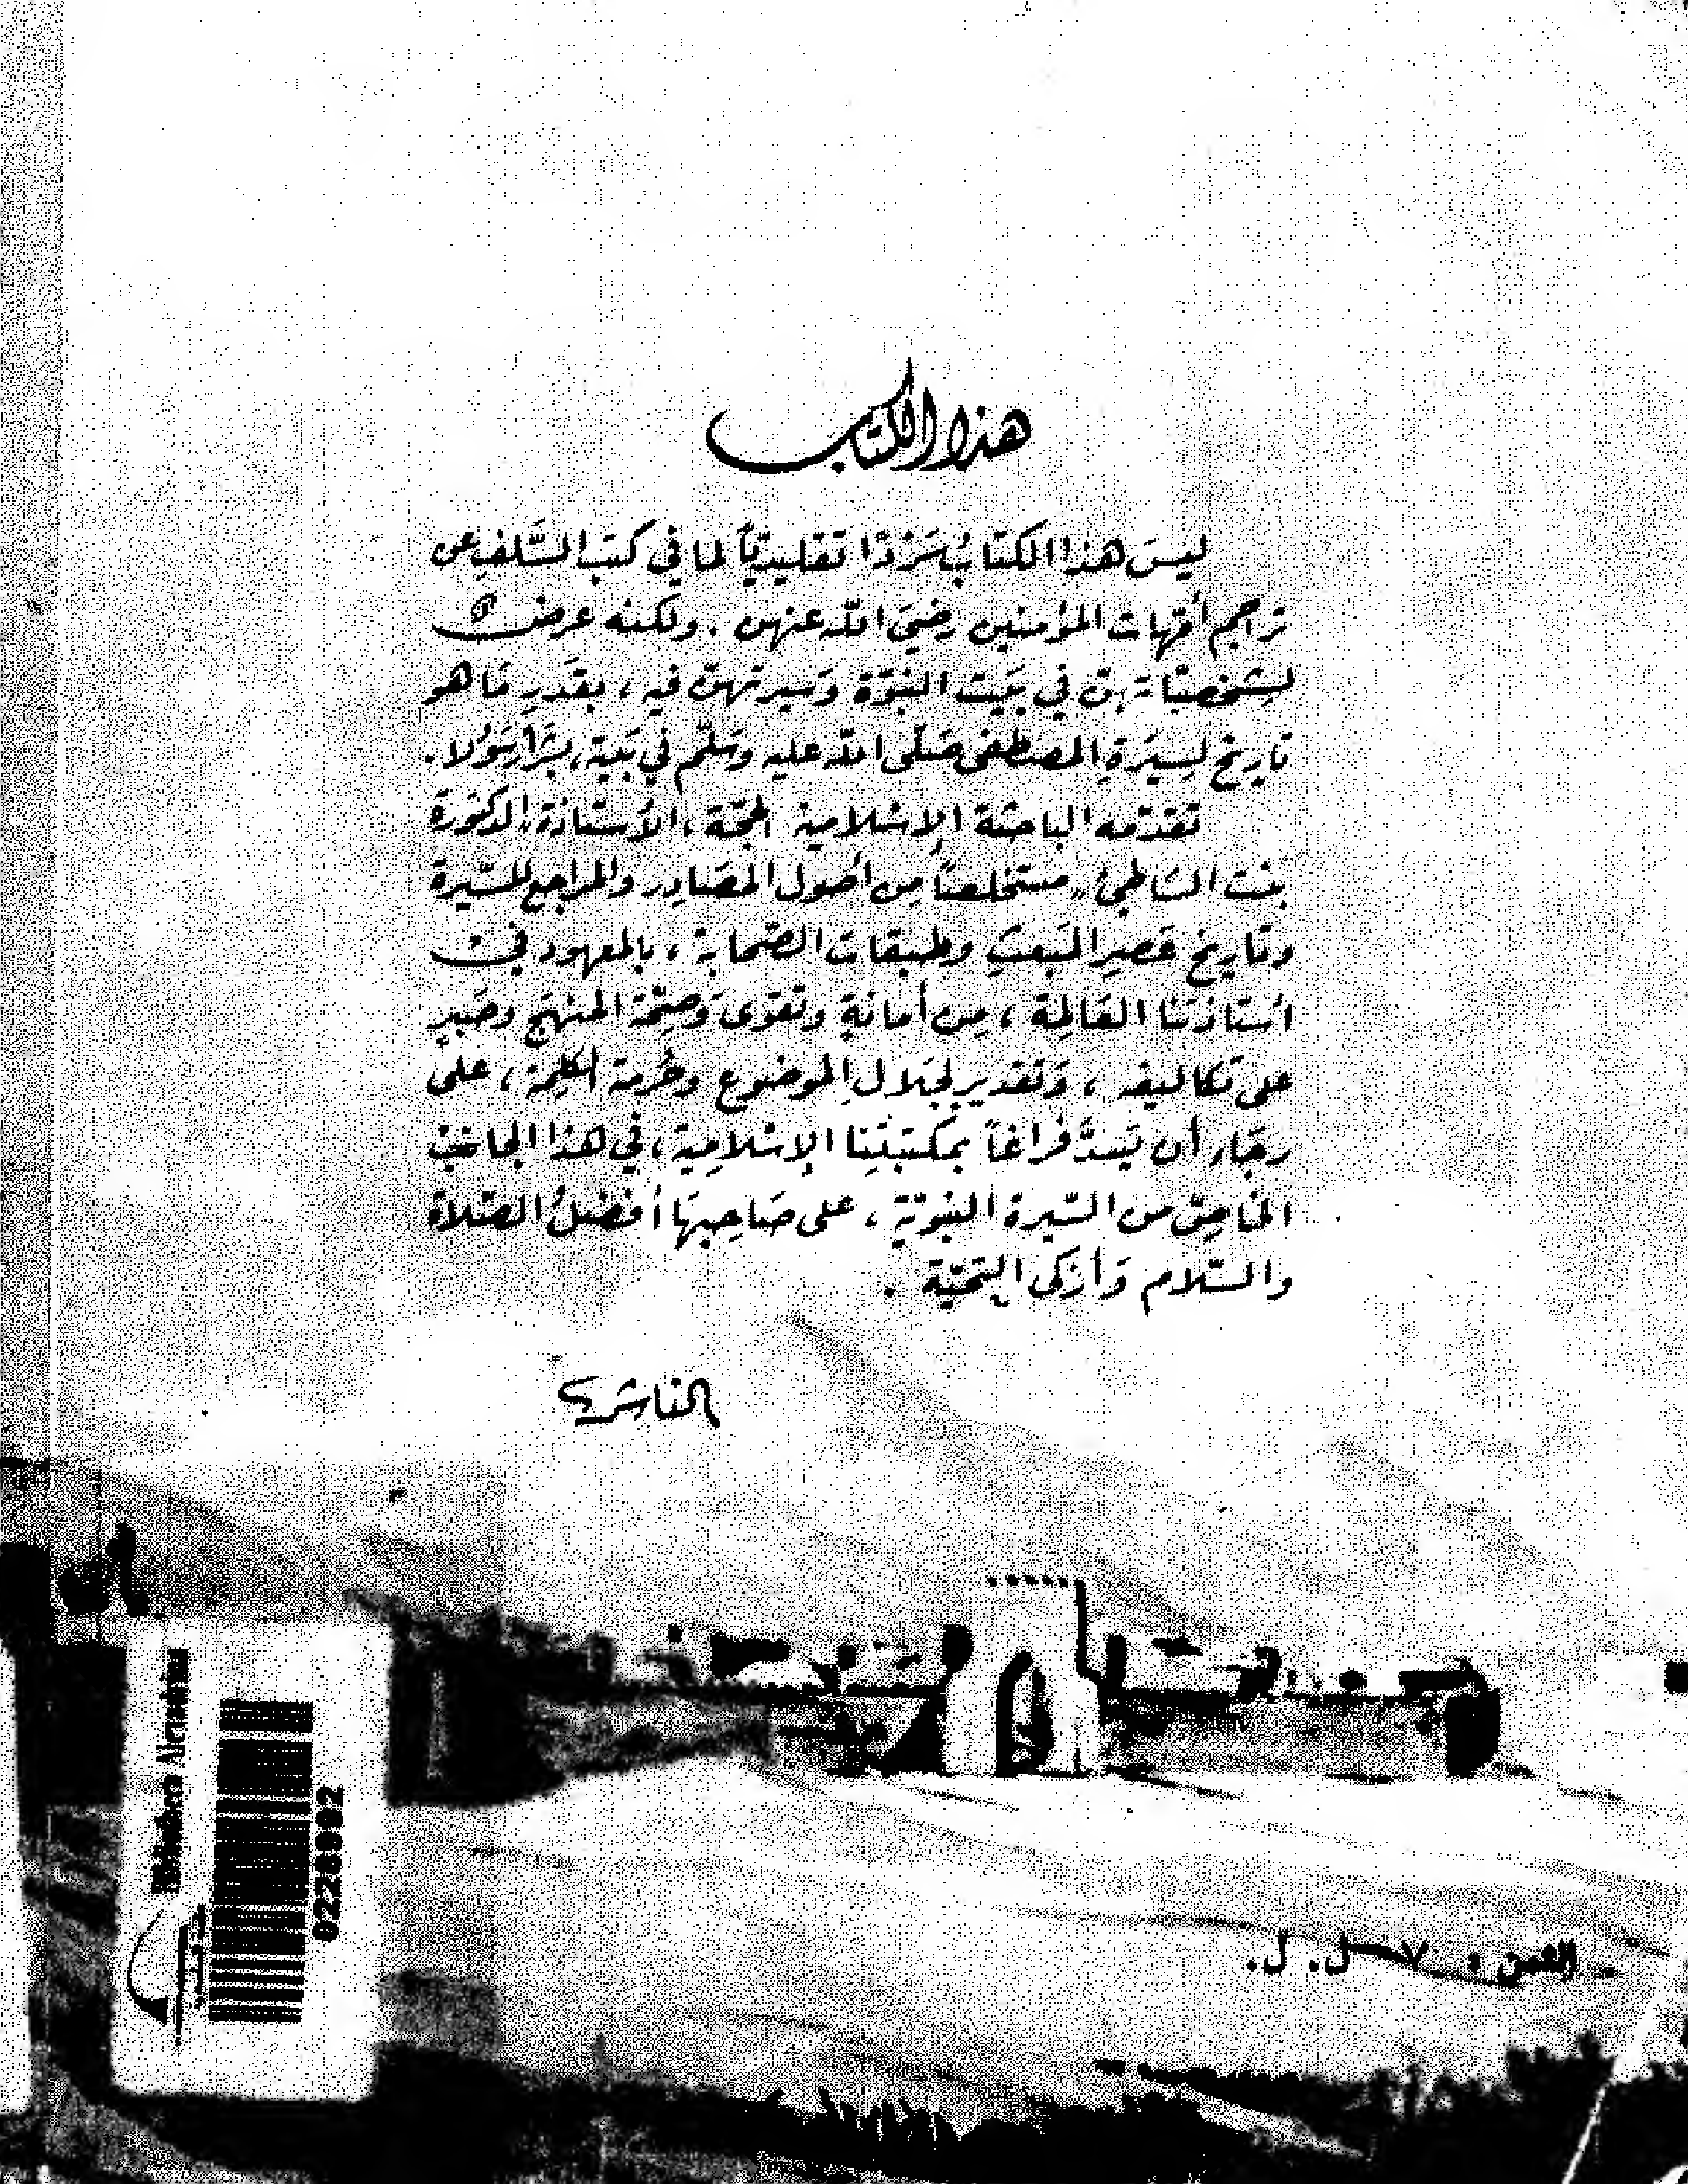 هذا الكتاب
ليسَ هذا الكتابُ سَرْدًا تقليديًّا لما في كتب السَّلف عن
تراجم أمّهات المؤمنين رضيَ الله عنهن . ولكنه عرضٌ
لشخصيّاتهنّ في بَيت النبوّة وسَيرتهنّ فيه ، بقَدر مَا هو
تاريخ لسِيرَةِ المصطفى صَلّى الله عليه وسَلّم في بَيته ، بشَرًا رسَوُلا .
تقدّمه الباحثة الإسْلامية الحجّة ، الأُستاذة الدكتورة
بنت الشاطئ ، مستخلصاً مِن أصول المصَادِر والمراجع للسّيرة
وتاريخ عَصرِ المَبعثِ وطبقات الصّحابة ، بالمعهود في
اسُتاذتنا العَالِمة ، مِن أمانةٍ وتقوى وَصِحّة المنهَج وصَبرٍ
على تكاليفه ، وَتقديرٍ لجَلالِ الموضوع وحُرمة الكلِمة ، على
رجَاء أن يَسدَّ فراغاً بمكتبتنا الإسْلامِية ، في هذا الجانبْ
الخاصّ من السّيرة النبَويّة ، على صَاحِبهَا أفضلُ الصّلاة
والسّلام وَأزكى التحيّة .
الناشر
0228092
الثمن : ٧ ل. ل.